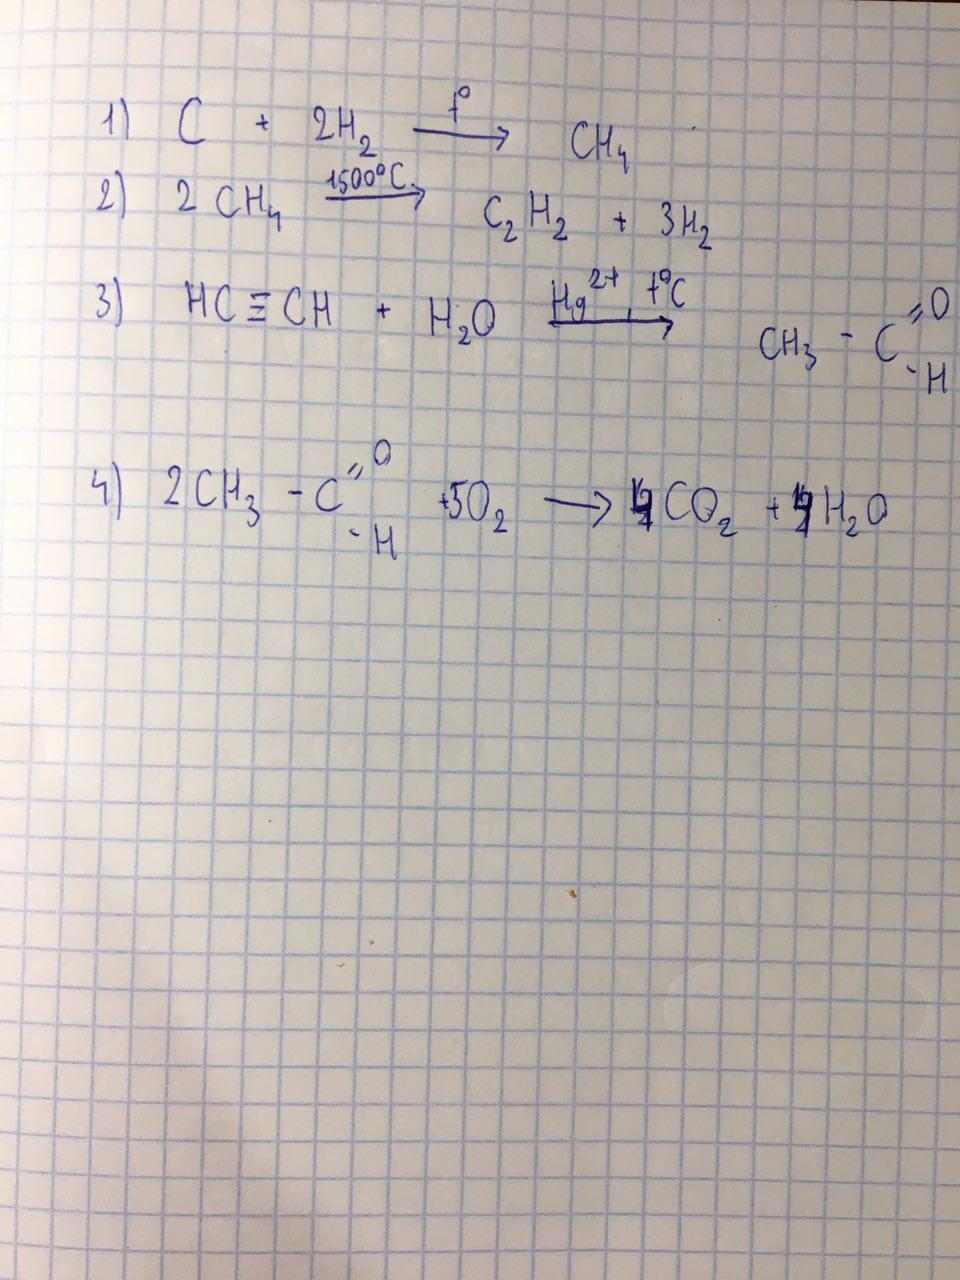 1) C + 2H₂ —t°→ CH₄
2) 2 CH₄ —1500°C→ C₂H₂ + 3H₂
3) HC≡CH + H₂O —Hg²⁺, t°C→ CH₃ - C (=O) - H
4) 2CH₃ - C (=O) - H + 5O₂ → 4CO₂ + 4H₂O